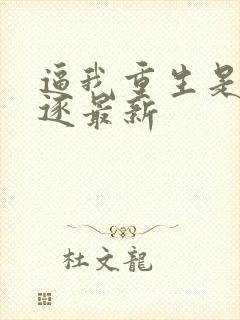 逼我重生是
逐最新
杜文龍